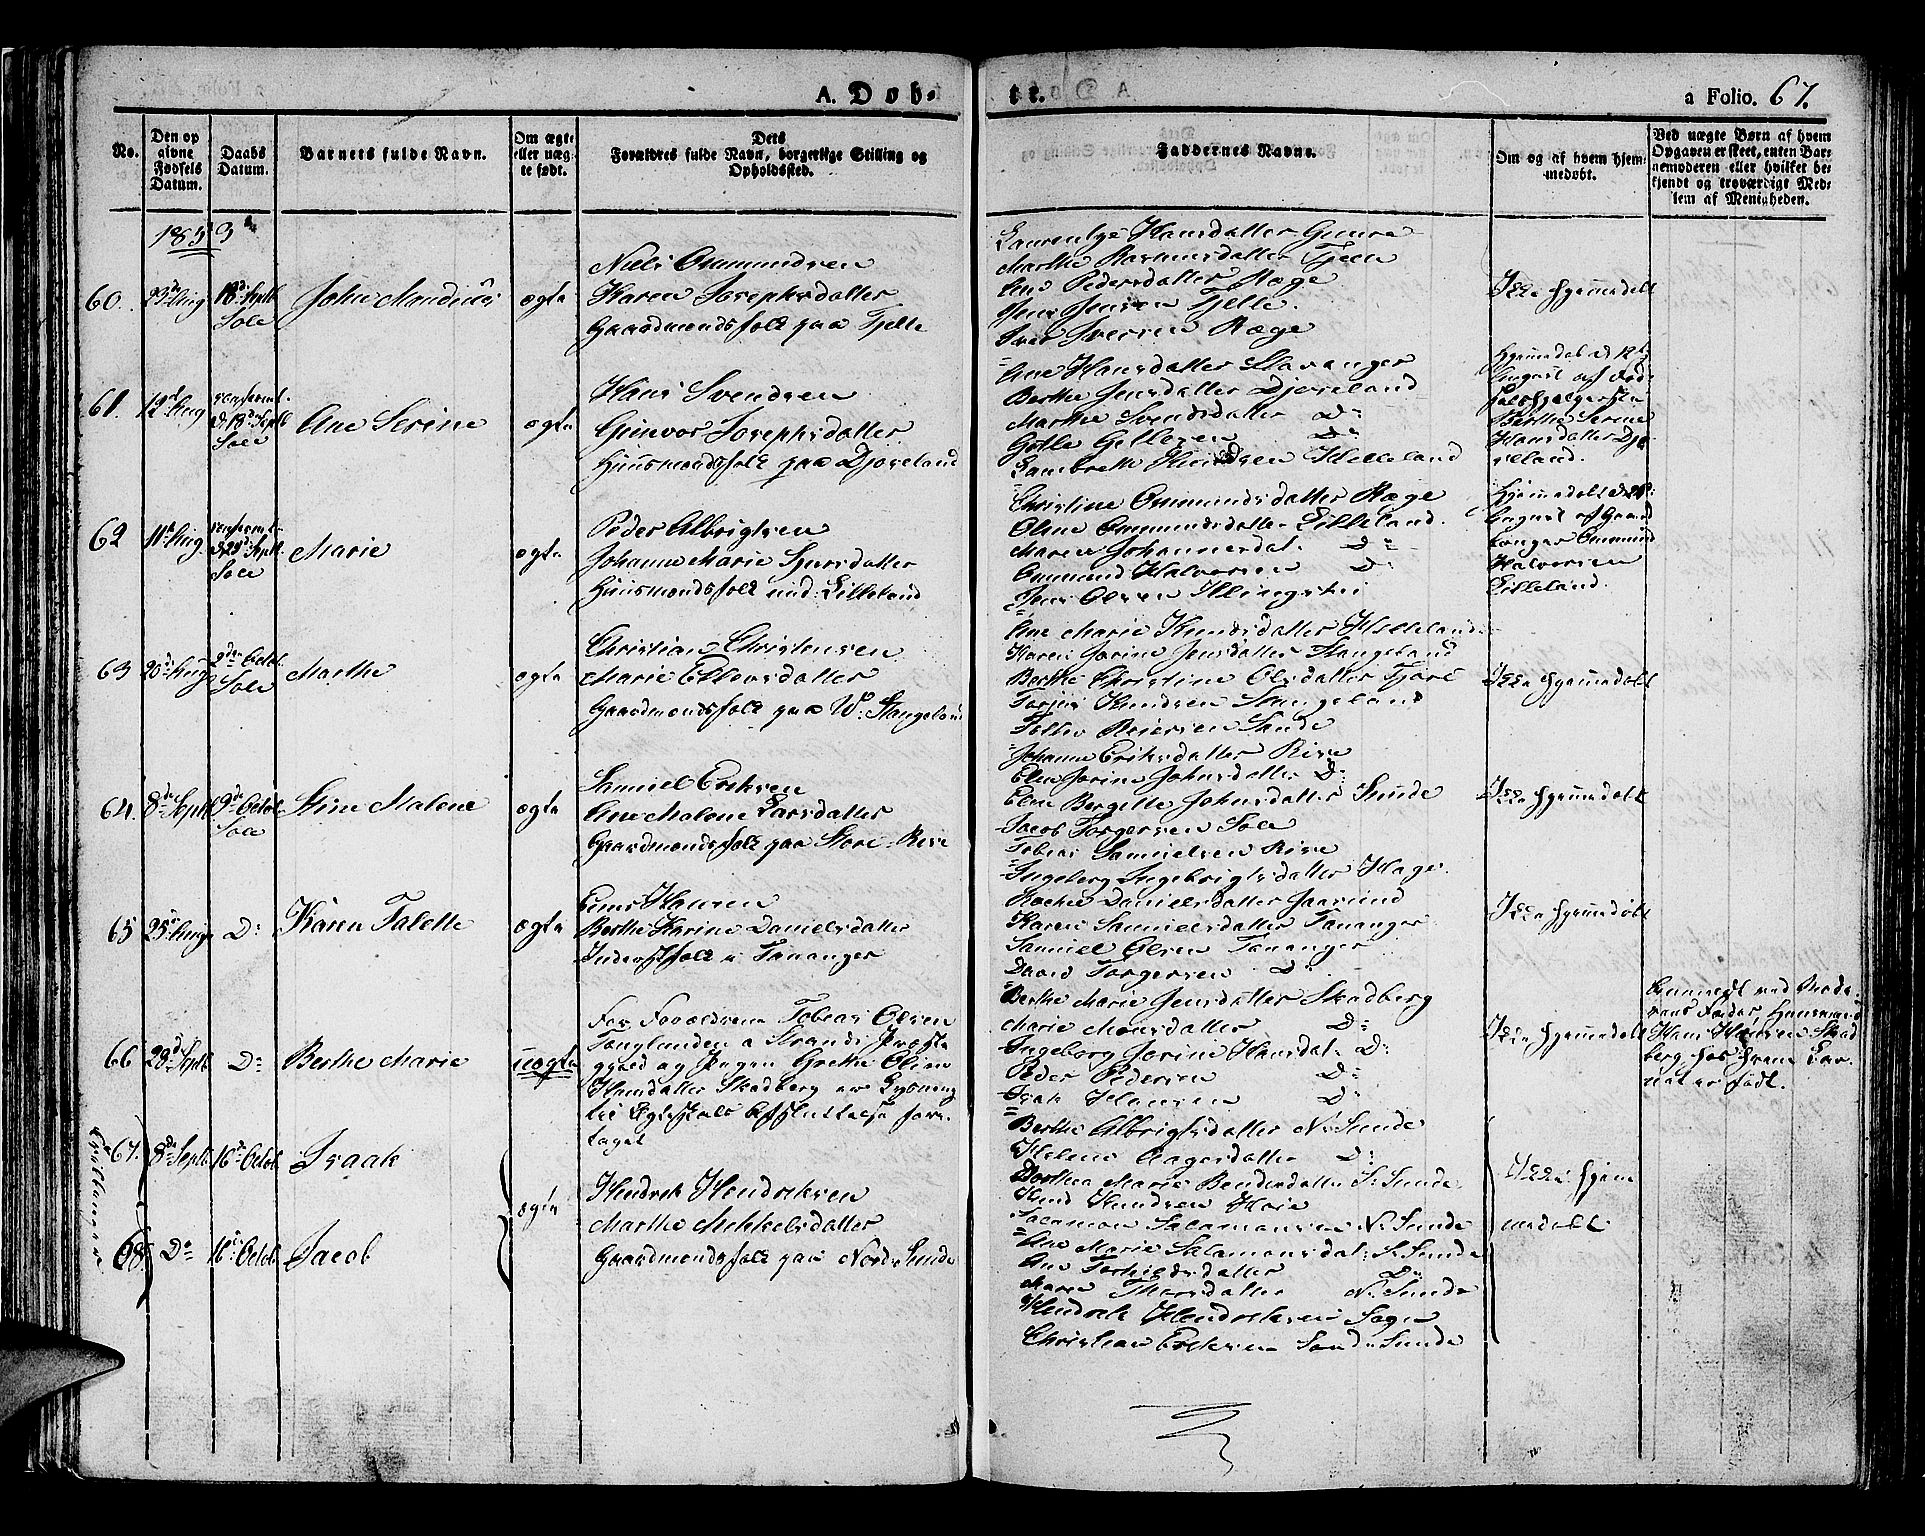 A. Døb-
te.
a Folio. 67.
No.
Den opgivne Fødsels Datum.
Daabs Datum.
Barnets fulde Navn.
Om ægte eller uægte født.
Dets
Forældres fulde Navn, borgerlige Stilling og
Opholdssted.
Faddernes Navne.
Om og af hvem hjemmedøbt.
Ved uægte Børn af hvem
Opgaven er skeet, enten Barnemoderen eller hvilket bekjendt og troværdigt Medlem af Menigheden.
1853
60. 23de Aug 18de Septb Sole
John Mandius
ægte
Niels Ommundsen
Karen Josephsdatter
Gaardmandsfolk paa Tjelte
Laurentze Hansdatter
Marthe Rasmusdatter
Ane Pedersdatter Ræge
Jens Jensen Tjelte
Iver Iversen Ræge
Ikke hjemmedøbt
61. 12te Aug d. 18de Septb Sole
Ane Serine
ægte
Hans Svendsen
Gunvor Josephsdatter
Huusmandsfolk paa Djoreland
Ane Hansdatter Stavanger
Berthe Jensdatter Djoreland
Marthe Svendsdatter Do
Gitle Gitlesen Do
Lambrett Knudsen Helleland
Hjemmedøbt d. 12te
August af
Berthe Serine
Hansdatter Djoreland.
62 11te Aug d. 25de Septb. Sole
Marie
ægte
Peder Albrigtsen
Johanne Marie Sjursdatter
Huusmandsfolk und: Lilleland
Christine Ommundsdatter Ræge
Oline Ommundsdatter Lilleland.
Maren Johannesdat. Do
Ommund Halvorsen Do
Jens Olsen
Hjemmedøbt d.
August af Gaardbruger Ommund
Halvorsen
Lilleland.
63 20de Aug 2den Octob. Sole
Marthe
ægte
Christian Christensen
Marie Ellevsdatter
Gaardmandsfolk paa W: Stangeland
Ane Marie Knudsdatter Helleland
Karen Jorine Jensdatter Stangeland
Berthe Christine Olsdatter Tjore
Torjer Knudsen Stangeland
Tollev Reiersen Sande
Ikke hjemmedøbt
64. 8de Septb 9de Octob Sole
Stine Malene
ægte
Samuel Eriksen
Ane Malene Larsdatter
Gaardmandsfolk paa Store Risa
Johanne Eriksdatter Risa
Elen Jorine Johnsdatter Do
Elen Bergitte Johnsdatter Sunde
Jacob Torgersen Sole
Tobias Samuelsen Risa
Ikke hjemmedøbt
65 25de Aug Do
Karen Talette
ægte
Hansen
Berthe Karine Danielsdatter
Inderstfolk i Tananger
Ingeborg Ingebrigtsdatter Hage.
Rachel Danielsdatter Jaasund
Karen Samuelsdatter Tananger
Samuel Olsen Tananger
David Torgersen Do
Ikke hjemmedøbt
66 28de Septb Do
Berthe Marie
uægte
For Forældrene Tobias Olsen
Tonglanden i Strands Præstegjeld og Pigen Grethe Oline
Hansdatter Skadberg er Lysning
til Ægteskabs Afsluttelse foretaget
Berthe Marie Jensdatter Skadberg
Marie Monsdatter Do
Ingeborg Jorine Hansdat. Do
Peder Pedersen Do
Isak Hansen Do
Ikke hjemmedøbt
Anmeldt ved Moderens Fader Huusmand
Hans Hansen Skadberg hos hvem Barnet er født.
Tvillinger
67. 8de Septb 16de Octob.
Isaak
68. Do 16de Octob.
Jacob
ægte
Hendrik Hendriksen
Marthe Mikkelsdatter
Gaardmandsfolk paa Nordre Sunde
Berthe Albrigtsdatter N. Sunde
Helene Aagesdatter Do
Dorthea Marie Bendixdatter S. Sunde
Knud Knudsen Hoie
Salamon Salamonsen N. Sunde
Ane Marie Salamonsdat. S. Sunde
Ane Torkildsdatter Do
Maren Thorsdatter N. Sunde
Hendrik Hendriksen Sogn
Christian Eriksen Sondre Sunde
Ikke hjemmedøbt